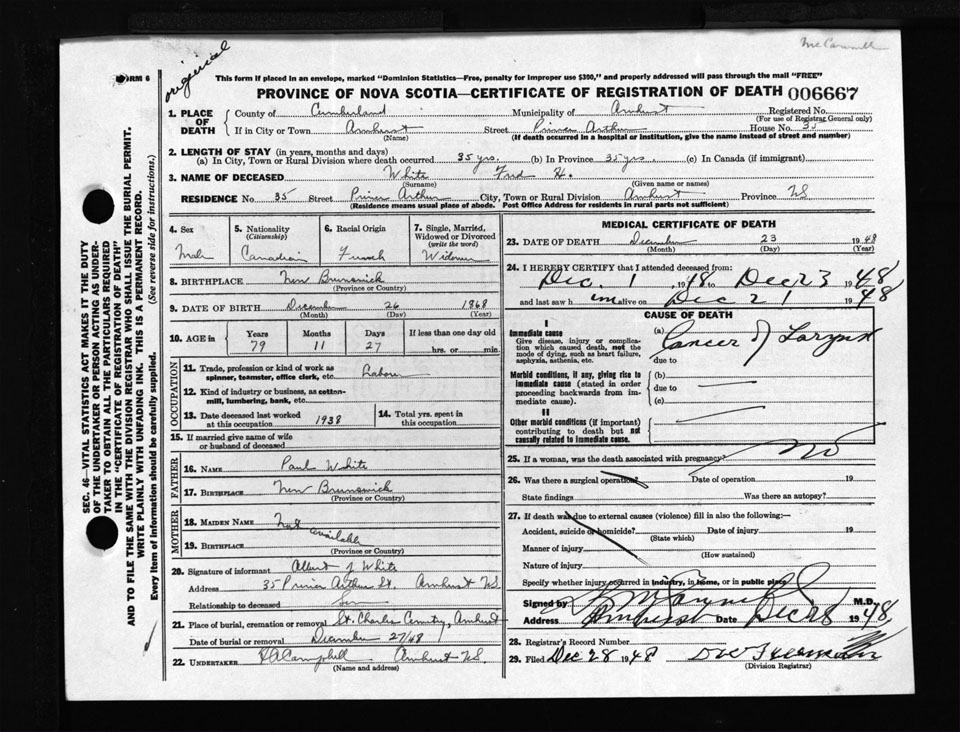 McCarroll
original
FORM 6
This form if placed in an envelope, marked "Dominion Statistics—Free, penalty for improper use $300," and properly addressed will pass through the mail "FREE"
PROVINCE OF NOVA SCOTIA—CERTIFICATE OF REGISTRATION OF DEATH 006667
SEC. 46—VITAL STATISTICS ACT MAKES IT THE DUTY
OF THE UNDERTAKER OR PERSON ACTING AS UNDER-
TAKER TO OBTAIN ALL THE PARTICULARS REQUIRED
IN THE "CERTIFICATE OF REGISTRATION OF DEATH"
AND TO FILE THE SAME WITH THE DIVISION REGISTRAR WHO SHALL ISSUE THE BURIAL PERMIT.
WRITE PLAINLY WITH UNFADING INK. THIS IS A PERMANENT RECORD.
Every item of information should be carefully supplied. (See reverse side for instructions.)
1. PLACE OF DEATH
County of Cumberland Municipality of Amherst Registered No.
(For use of Registrar General only)
If in City or Town Amherst Street Prince Arthur House No. 35
(Name) (If death occurred in a hospital or institution, give the name instead of street and number)
2. LENGTH OF STAY (in years, months and days)
(a) In City, Town or Rural Division where death occurred 35 yrs. (b) In Province 35 yrs. (c) In Canada (if immigrant)
3. NAME OF DECEASED White Fred H.
(Surname) (Given name or names)
RESIDENCE No. 35 Street Prince Arthur City, Town or Rural Division Amherst Province NS
(Residence means usual place of abode. Post Office Address for residents in rural parts not sufficient)
4. Sex Male
5. Nationality (Citizenship) Canadian
6. Racial Origin French
7. Single, Married, Widowed or Divorced (write the word) Widower
8. BIRTHPLACE New Brunswick
(Province or Country)
9. DATE OF BIRTH December 26 1868
(Month) (Day) (Year)
10. AGE in Years 79 Months 11 Days 27 If less than one day old hrs. or min.
OCCUPATION
11. Trade, profession or kind of work as spinner, teamster, office clerk, etc. Labour
12. Kind of industry or business, as cotton-mill, lumbering, bank, etc.
13. Date deceased last worked at this occupation 1938
14. Total yrs. spent in this occupation
15. If married give name of wife or husband of deceased
FATHER
16. NAME Paul White
17. BIRTHPLACE New Brunswick
(Province or Country)
MOTHER
18. MAIDEN NAME Not available
19. BIRTHPLACE
(Province or Country)
20. Signature of informant Albert J White
Address 35 Prince Arthur St. Amherst NS
Relationship to deceased Son
21. Place of burial, cremation or removal St. Charles Cemetry, Amherst
Date of burial or removal December 27/48
22. UNDERTAKER Campbell Amherst NS.
(Name and address)
MEDICAL CERTIFICATE OF DEATH
23. DATE OF DEATH December 23 1948
(Month) (Day) (Year)
24. I HEREBY CERTIFY that I attended deceased from:
Dec. 1, 1948 to Dec 23 1948
and last saw h im alive on Dec 21 1948
CAUSE OF DEATH
I
Immediate cause
Give disease, injury or complication which caused death, not the mode of dying, such as heart failure, asphyxia, asthenia, etc.
(a) Cancer of Larynx
due to
Morbid conditions, if any, giving rise to immediate cause (stated in order proceeding backwards from immediate cause).
(b)
due to
(c)
II
Other morbid conditions (if important) contributing to death but not causally related to immediate cause.
25. If a woman, was the death associated with pregnancy? No
26. Was there a surgical operation? Date of operation 19
State findings Was there an autopsy?
27. If death was due to external causes (violence) fill in also the following:—
Accident, suicide or homicide? Date of injury 19
(State which)
Manner of injury
(How sustained)
Nature of injury
Specify whether injury occurred in industry, in home, or in public place
Signed by M.D.
Address Amherst Date Dec 28 1948
28. Registrar's Record Number
29. Filed Dec 28 1948
(Division Registrar)